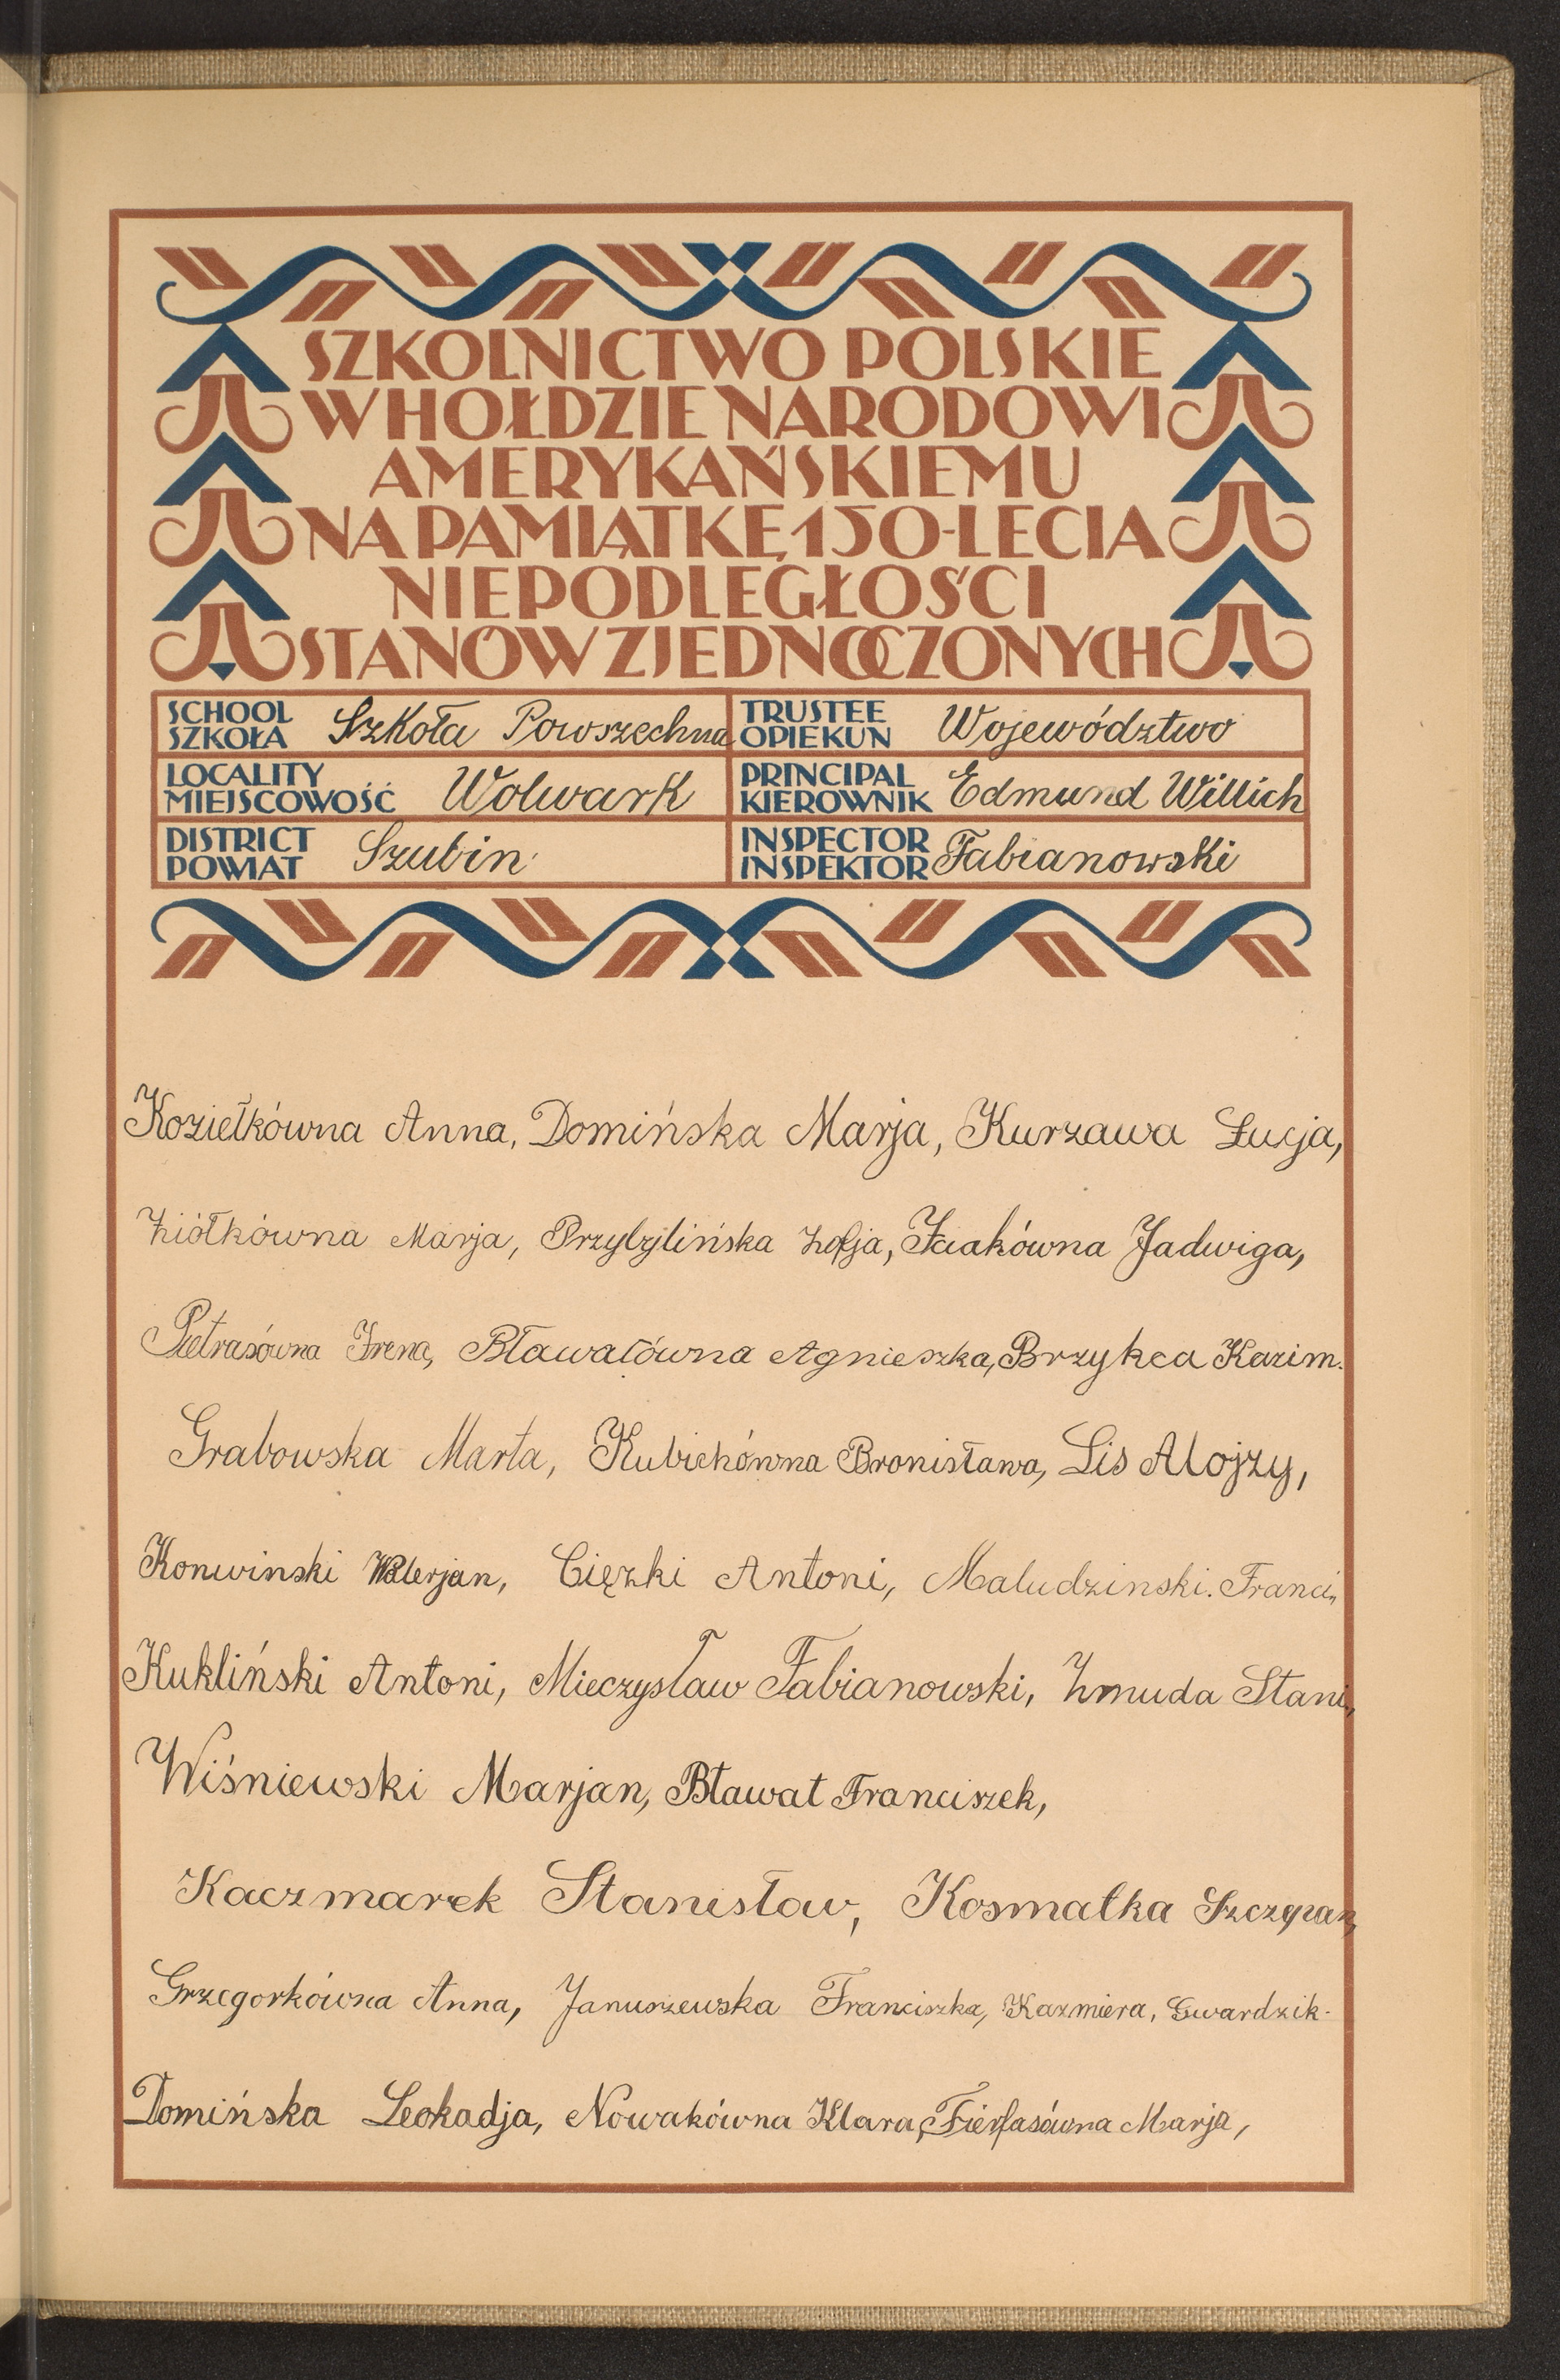 SZKOLNICTWO POLSKIE
W HOŁDZIE NARODOWI
AMERYKAŃSKIEMU
NA PAMIĄTKĘ 150-LECIA
NIEPODLEGŁOŚCI
STANÓW ZJEDNOCZONYCH
SCHOOL
SZKOŁA Szkoła Powszechna
TRUSTEE
OPIEKUN Województwo
LOCALITY
MIEJSCOWOŚĆ Wolwark
PRINCIPAL
KIEROWNIK Edmund Willich
DISTRICT
POWIAT Szubin
INSPECTOR
INSPEKTOR Fabianowski
Koziełkówna Anna, Domińska Marja, Kurzawa Łucja,
Ziółkówna Marja, Przybylińska Zofja, Jadwiga,
Pietrasówna Irena, Bławatówna Agnieszka, Brzykca Kazim.
Grabowska Marta, Kubickówna Bronisława, Lis Alojzy,
Konwinski Walerjan, Cięzki Antoni, Maludzinski. Franci,
Kukliński Antoni, Mieczysław Fabianowski, Zmuda Stani,
Wiśniewski Marjan, Bławat Franciszek,
Kaczmarek Stanisław, Kosmalka Szczepan,
Grzegorkówna Anna, Januszewska Franciszka, Kazmiera, Gwardzik-
Domińska Leokadja, Nowakówna Klara, Marja,